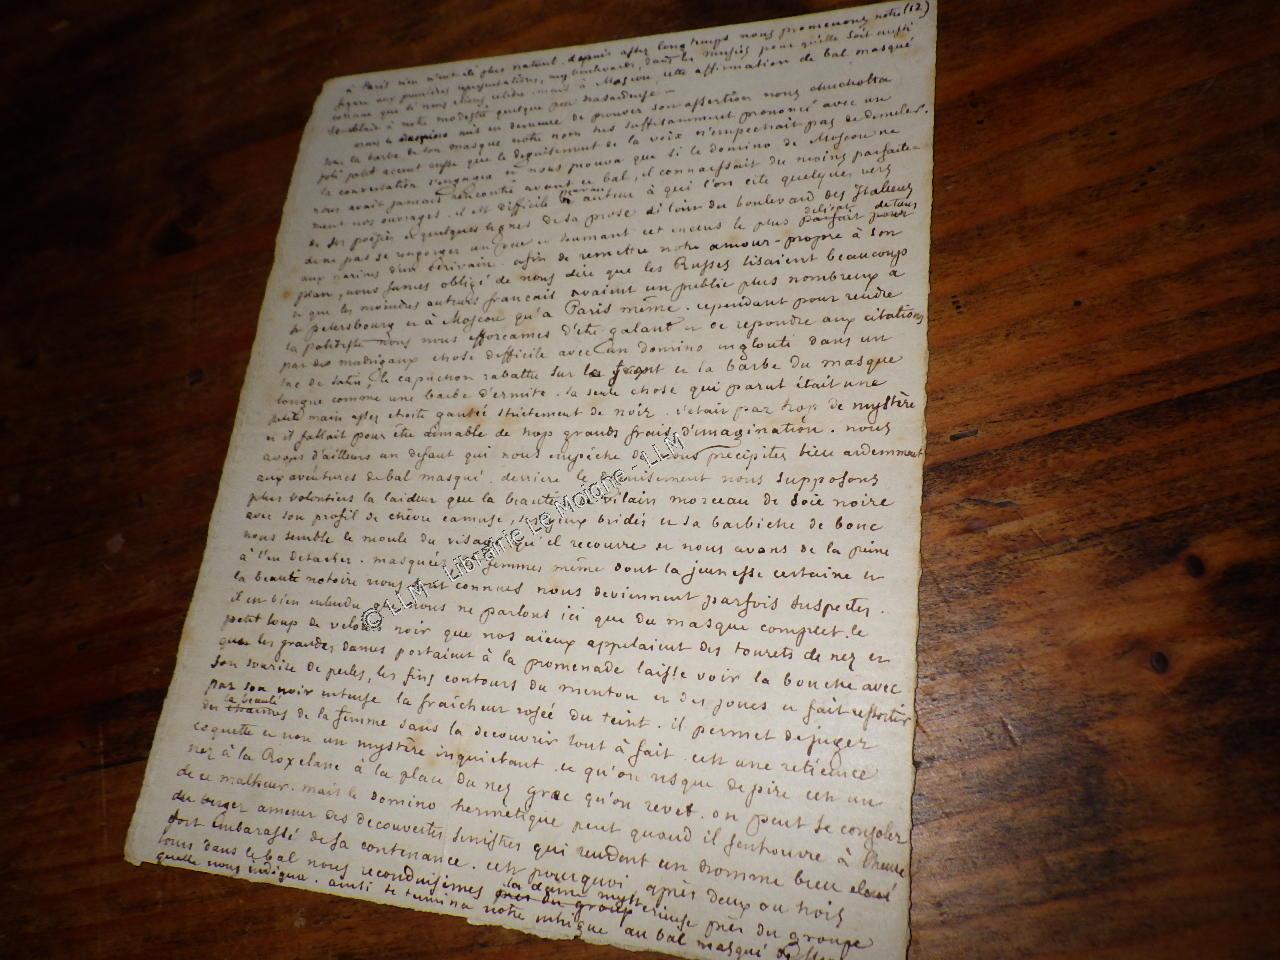 (12)
à Paris rien n'aurait été plus naturel. depuis assez longtemps nous promenons notre
figure aux premières représentations, aux boulevards, dans les musées pour qu'elle soit aussi
connue que si nous étions célèbre mais à Moscou, cette affirmation de bal masqué
semblait à notre modestie quelque peu hasardeuse —
mais le masque mis en demeure de prouver son assertion nous chuchotta
sous la barbe de son masque notre nom très suffisamment prononcé avec un
joli petit accent russe que le deguisement de la voix n'empechait pas de demeler.
la conversation s'engagea et nous prouva que si le domino de Moscou ne
nous avait jamais rencontré avant ce bal, il connaissait du moins parfaite-
ment nos ouvrages. il est difficile à un auteur à qui l'on cite quelques vers
de ses poésies et quelques lignes de sa prose si loin du boulevard des Italiens
de ne pas se rengorger un peu en humant cet encens le plus délicat de tous
aux narines d'un écrivain. afin de remettre notre amour-propre à son
plan, nous fumes obligé de nous dire que les Russes lisaient beaucoup
et que les moindres auteurs français avaient un public plus nombreux à
St Petersbourg et à Moscou qu'à Paris même. cependant pour rendre
la politesse nous nous efforcames d'être galant et de repondre aux citations
par des madrigaux chose difficile avec un domino englouti dans un
sac de satin, le capuchon rabattu sur le front et la barbe du masque
longue comme une barbe d'ermite. la seule chose qui parut était une
petite main assez étroite gantée strictement de noir. c'était par trop de mystère
et il fallait pour être aimable de trop grands frais d'imagination. nous
avons d'ailleurs un defaut qui nous empêche de nous précipiter bien ardemment
aux aventures de bal masqué. derrière le deguisement nous supposons
plus volontiers la laideur que la beauté. ce vilain morceau de soie noire
avec son profil de chèvre camuse, ses yeux bridés et sa barbiche de bouc
nous semble le moule du visage qu'il recouvre et nous avons de la peine
à l'en detacher. masquées les femmes même dont la jeunesse certaine et
la beauté notoire nous sont connues nous deviennent parfois suspectes.
il est bien entendu que nous ne parlons ici que du masque complet. le
petit loup de velours noir que nos aïeux appelaient des tourets de nez et
que les grandes dames portaient à la promenade laisse voir la bouche avec
son sourire de perles, les fins contours du menton et des joues et fait ressortir
par son noir intense la fraîcheur rosée du teint. il permet de juger
de la beauté de la femme sans la decouvrir tout à fait. c'est une reticence
coquette et non un mystère inquietant. ce qu'on risque de pire c'est un
nez à la Roxelane à la place du nez grec qu'on revet. on peut se consoler
de ce malheur. mais le domino hermetique peut quand il s'entrouvre à l'heure
du berger amener des decouvertes sinistres qui rendent un homme bien elevé
fort embarassé de sa contenance. c'est pourquoi, après deux ou trois
tours dans le bal nous reconduisîmes la dame mysterieuse près du groupe
qu'elle nous indiqua. ainsi se termina notre intrigue au bal masqué de
© LLM - Librairie Le Moigne - LLM